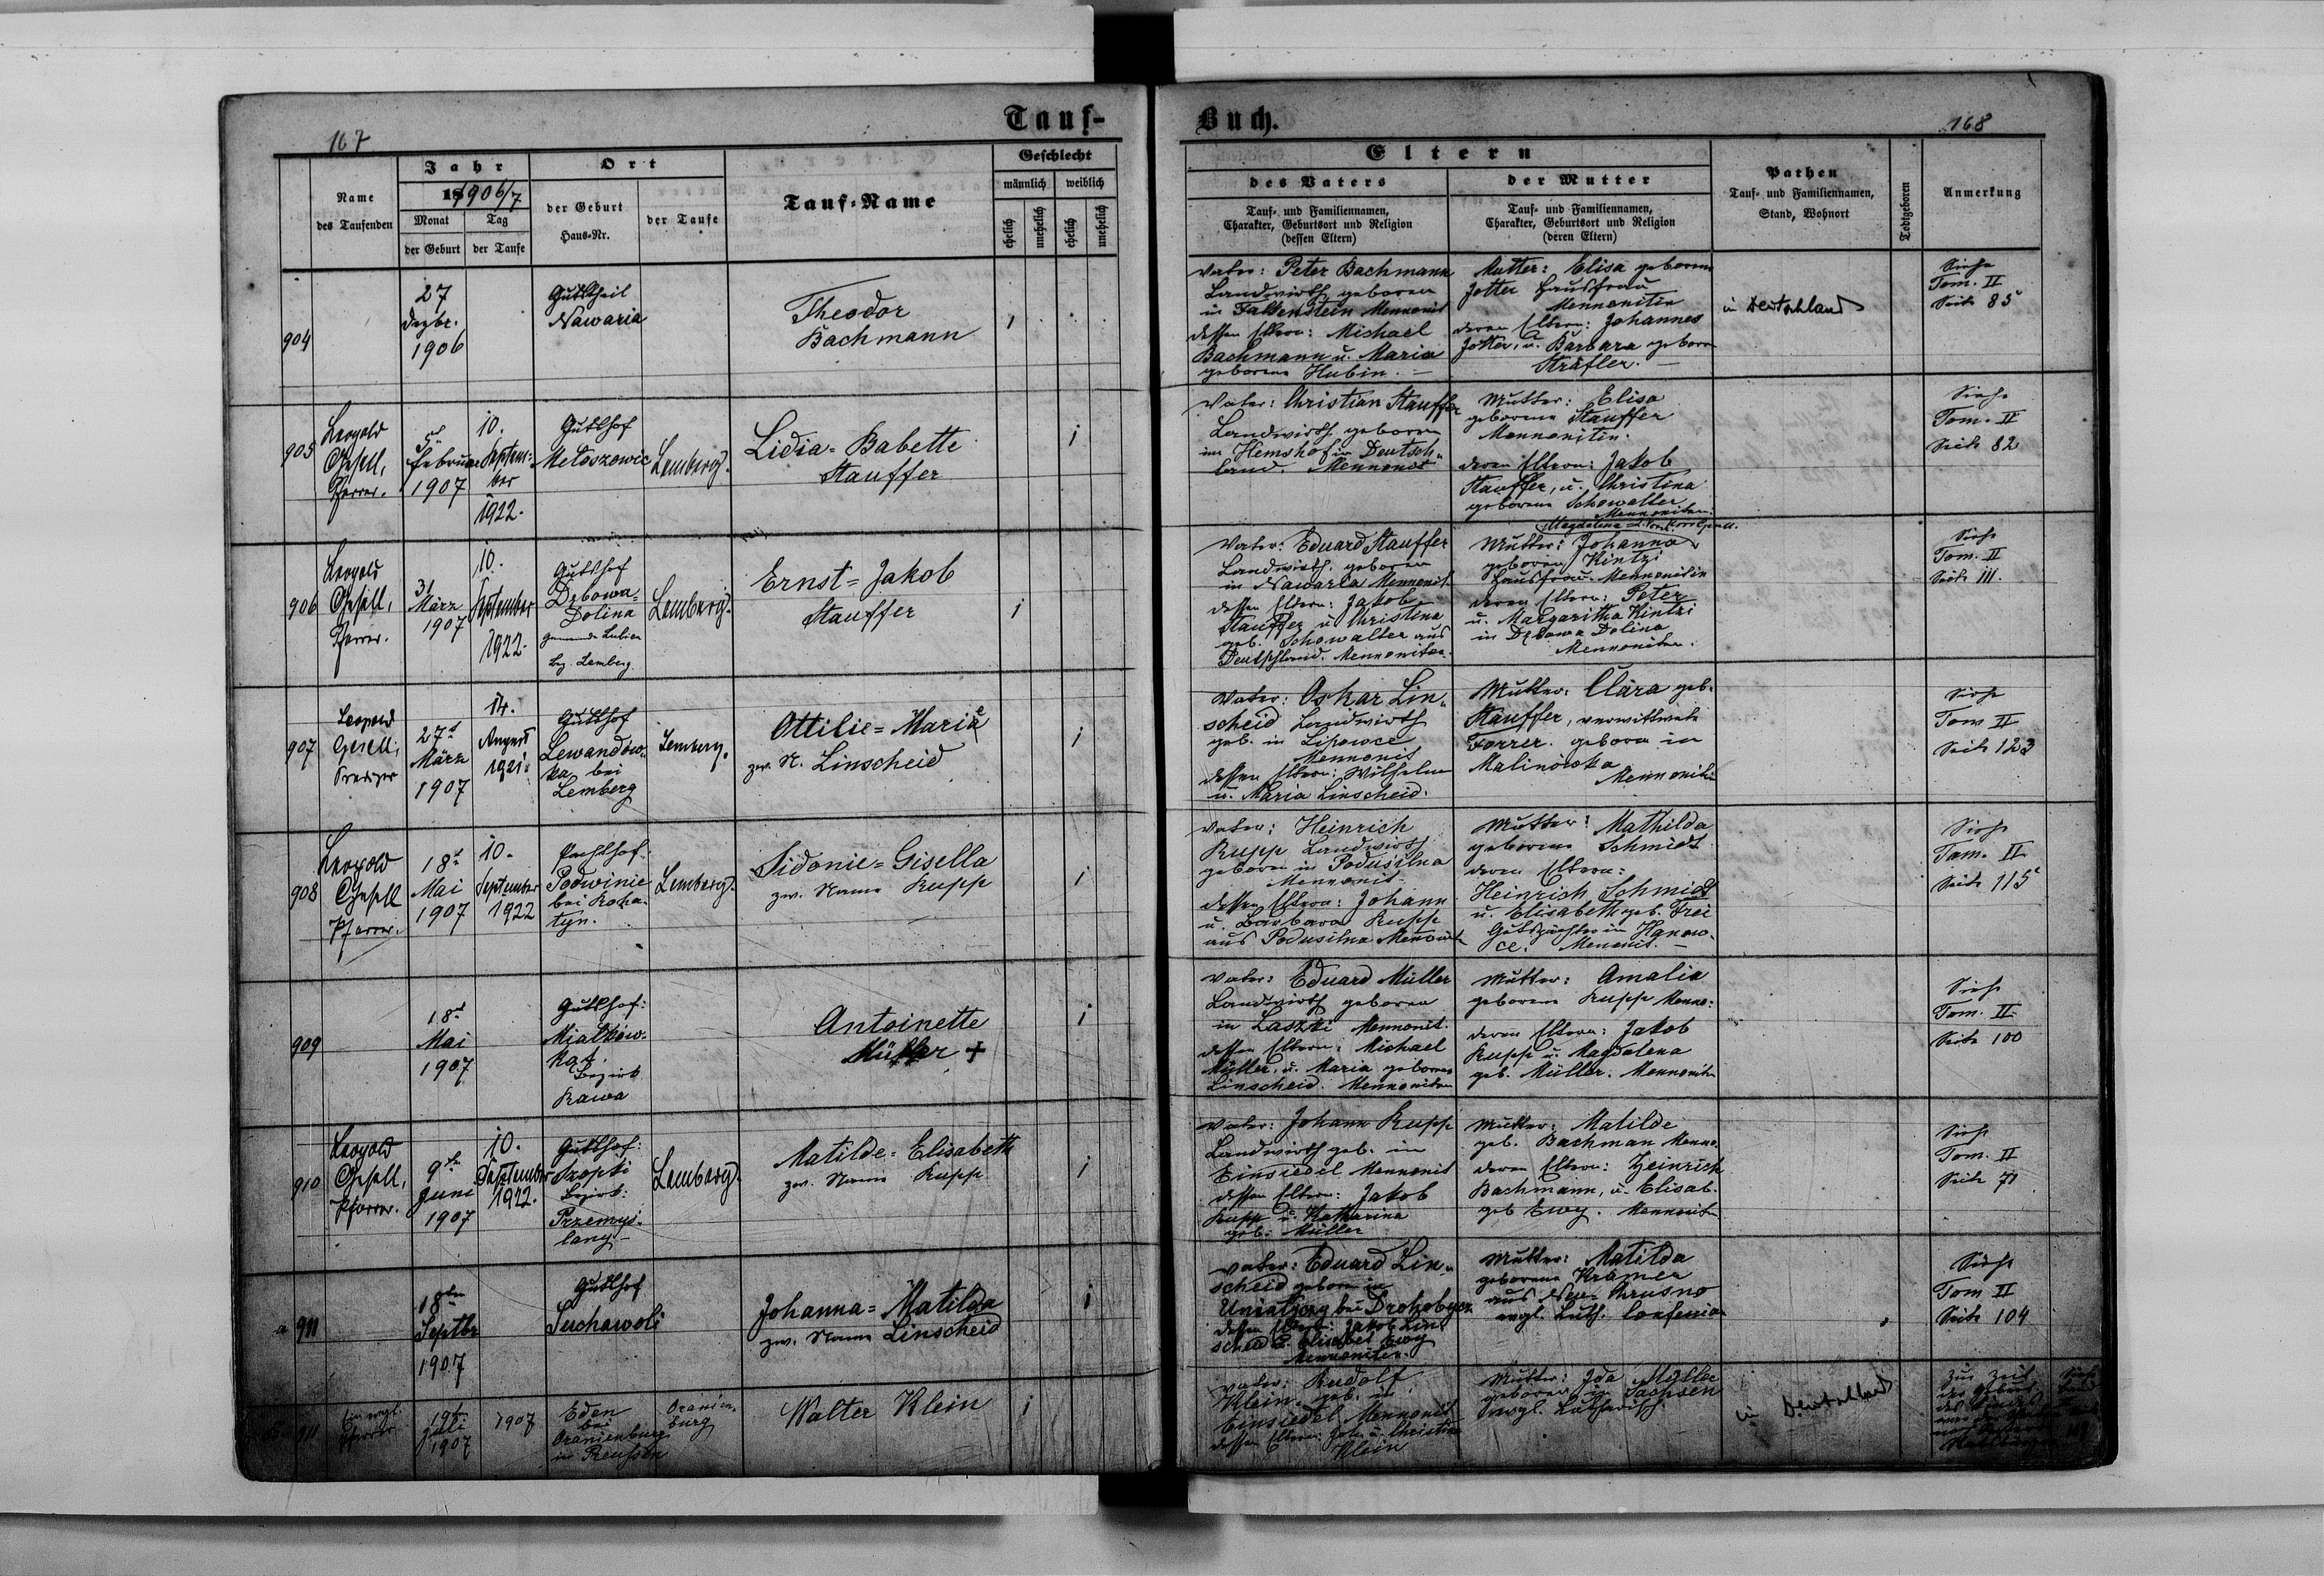 Tauf-
Buch.
167
168
Name
des Taufenden
Jahr
181906/7
Monat
der Geburt
Tag
der Taufe
Ort
der Geburt
Haus-Nr.
der Taufe
Tauf-Name
Geschlecht
männlich
weiblich
ehelich
unehelich
ehelich
unehelich
Eltern
des Vaters
Tauf- und Familiennamen,
Charakter, Geburtsort und Religion
(dessen Eltern)
der Mutter
Tauf- und Familiennamen,
Charakter, Geburtsort und Religion
(deren Eltern)
Pathen
Tauf- und Familiennamen,
Stand, Wohnort
Todtgeboren
Anmerkung
904
27
Dezbr.
1906
Nawaria
Theodor
Bachmann
1
Vater: Peter Bachmann
Landwirth geboren
in Falkenstein Mennonit
dessen Eltern: Michael
Bachmann u. Maria
geborene Hubin. —
Mutter: Elisa geborene
Jotter Hausfrau
Mennonitin
deren Eltern: Johannes
Jotter, u. Barbara geboren
in Deutschland
Siehe
Tom. II
Seite 85
905
Leopold
Gesell,
Pfarrer.
5
Februar
1907
10.
Septem-
ber
1922.
Gutshof
Lemberg.
Lidia-Babette
Stauffer
1
Vater: Christian Stauffer
Landwirth geboren
im Hemshof in Deutsch-
land. Mennonit
Mutter: Elisa
geborene Stauffer
Mennonitin.
deren Eltern: Jakob
Stauffer, u. Christina
geborene Schowalter
Mennoniten.
Siehe
Tom. II
Seite 82
906
Leopold
Gesell,
Pfarrer.
31
März
1907
10.
September
1922.
Gutshof
Dębowa-
Dolina
Bez. Lemberg
Lemberg.
Ernst-Jakob
Stauffer
1
Vater: Eduard Stauffer
Landwirth, geboren
in Nawaria Mennonit
dessen Eltern: Jakob
Stauffer u Christina
geb. Schowalter aus
Deutschland. Mennoniten.
Mutter: Johanna
geboren Kintzi
Hausfrau. Mennonitin
deren Eltern: Peter
u. Margaritha Kintzi
in Dębowa Dolina
Mennoniten.
Siehe
Tom. II
Seite 111.
907
Leopold
Gesell,
Prediger
27t
März
1907
14.
August
1921.
Gutshof
Lewandow-
ka bei
Lemberg
Lemberg.
Ottilie-Maria
zw. N. Linscheid
1
Vater: Oskar Lin-
scheid Landwirth
geb. in Lipowce
Mennonit
dessen Eltern: Wilhelm
u. Maria Linscheid.
Mutter: Clara geb.
Stauffer, verwittwete
Forrer. geboren in
Malinówka
Siehe
Tom II
Seite 123
908
Leopold
Gesell
Pfarrer.
18t
Mai
1907
10.
September
1922
Pachthof.
Podwinie
bei Roha-
tyn.
Lemberg.
Sidonie-Gisella
zw. Name Rupp
1
Vater: Heinrich
Rupp Landwirth
geboren in Podusilna
Mennonit.
dessen Eltern: Johann
u. Barbara Rupp
aus Podusilna Mennonit
Mutter: Mathilda
geborene Schmidt
deren Eltern:
Heinrich Schmidt
u. Elisabeth geb. Frei
Gutspächter in Hanow-
ce. Menonit. —
Siehe
Tom. II
Seite 115
909
18t
Mai
1907
Gutshof:
Miatków-
ka.
Bezirk
Rawa
Antoinette
Müller +
1
Vater: Eduard Müller
Landwirth geboren
in Laszki Mennonit.
dessen Eltern: Michael
Müller, u. Maria geboren
Linscheid. Mennoniten
Mutter: Amalia
geborene Rupp Menno:
deren Eltern: Jakob
Rupp u. Magdalena
geb. Müller. Mennonite
Siehe
Tom. II
Seite 100
910
Leopold
Gesell,
Pfarrer.
9te
Juni
1907
10.
September
1922.
Gutshof:
Bezirk:
Przemys-
lany
Lemberg.
Matilde-Elisabeth
zw. Name Rupp
1
Vater: Johann Rupp
Landwirth geb. in
Einsiedel Mennonit
dessen Eltern: Jakob
Rupp u. Katharina
geb. Müller
Mutter: Matilde
geb. Bachman Menno.
deren Eltern: Heinrich
Bachmann, u. Elisab.
geb Ewy. Mennonite
Siehe
Tom. II
Seite 71
a 911
18ten
Septbr
1907
Gutshof
Suchawoli
Johanna-Matilda
zw. Name Linscheid
1
Vater: Eduard Lin-
scheid geboren in
Uniatycze bei Drohobycz
dessen Eltern: Jakob Lin-
scheid u. Elisabet Ewy
Mennoniten.
Mutter: Matilda
geborene Kramer
aus Neu-Chrusno
evgl. Luth. Confession
Siehe
Tom II
Seite 104
911
Ein evgl.
Pfarrer
19t.
Juli
1907
1907
Eden
bei
Oranienburg
in Preußen
Oranien-
burg
Walter Klein
1
Vater: Rudolf
Klein, geb. in
Einsiedel Mennonit
dessen Eltern: Joh. u. Christine
Klein
Mutter: Ida Müller
geboren in Sachsen
Evgl. Lutherisch
in Deutschland
Zur Zeit
der Geburt
des Kindes